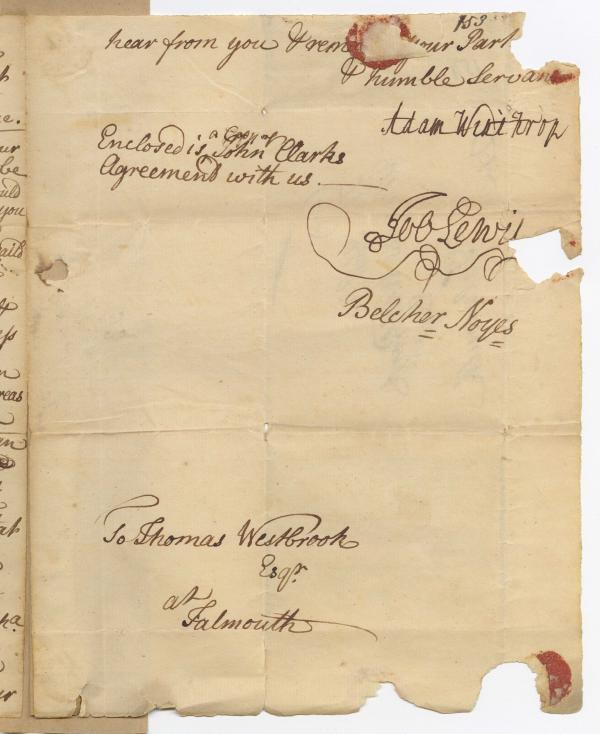 153
hear from you & rem your Part
& humble Servan
Adam Winthrop
Enclosed is a Copy of John Clarks
Agreement with us
Job Lewi
Belcher Noyes
To Thomas Westbrook
Esqr
at
Falmouth